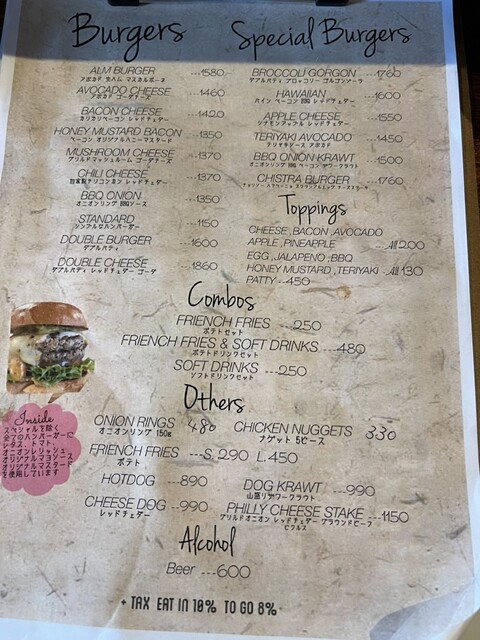 Burgers
ALM BURGER ---1580
アボカド 生ハム マスカルポーネ
AVOCADO CHEESE ---1460
アボカド ゴーダチーズ
BACON CHEESE ---1420
カリカリベーコン レッドチェダー
HONEY MUSTARD BACON ---1350
ベーコン オリジナルハニーマスタード
MUSHROOM CHEESE ---1370
グリルドマッシュルーム ゴーダチーズ
CHILI CHEESE ---1370
自家製チリコンカン レッドチェダー
BBQ ONION ---1350
オニオンリング BBQソース
STANDARD ---1150
シンプルなハンバーガー
DOUBLE BURGER ---1600
ダブルパティ
DOUBLE CHEESE ---1860
ダブルパティ レッドチェダー ゴーダ
Special Burgers
BROCCOLI GORGON ---1760
ダブルパティ ブロッコリー ゴルゴンゾーラ
HAWAIIAN ---1600
パイン ベーコン BBQ レッドチェダー
APPLE CHEESE ---1550
シナモンアップル レッドチェダー
TERIYAKI AVOCADO ---1450
テリヤキソース アボカド
BBQ ONION KRAWT ---1500
オニオンリング BBQ ベーコン ザワークラウト
CHISTRA BURGER ---1760
Toppings
CHEESE ,BACON ,AVOCADO
APPLE ,PINEAPPLE ...All 200
EGG ,JALAPENO ;BBQ
HONEY MUSTARD ,TERIYAKI ..All 130
PATTY ---450
Combos
FRIENCH FRIES ---250
ポテトセット
FRIENCH FRIES & SOFT DRINKS ---480
ポテトドリンクセット
SOFT DRINKS ---250
ソフトドリンクセット
Inside
スペシャルを除く
全てのハンバーガーに
レタス、トマト、
オニオンレリッシュ
オリジナルマヨソース
オリジナルマスタード
を使用しています
Others
ONION RINGS 480
オニオンリング 150g
CHICKEN NUGGETS 330
ナゲット 5ピース
FRIENCH FRIES ---S. 290 L. 450
ポテト
HOTDOG ---890
DOG KRAWT ---990
山盛りザワークラウト
CHEESE DOG ---990
レッドチェダー
PHILLY CHEESE STAKE ---1150
グリルドオニオン レッドチェダー グラウンドビーフ
ピクルス
Alcohol
Beer ---600
+ TAX EAT IN 10% TO GO 8%